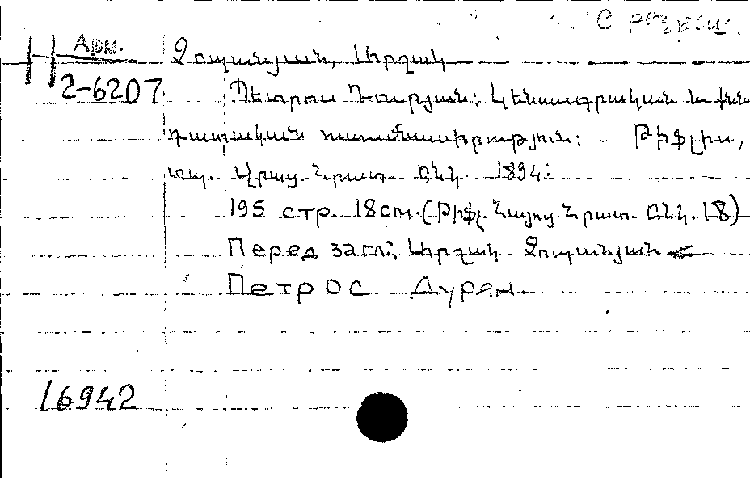 Арм.
2-6207
Չօպանյան, Արշակ
Պետրոս Դուրյան։ Կենսագրական և քն
դատական ուսումնասիրություն։ Թիֆլիս,
տպ. Վրաց. Հրատ. Ընկ. 1894։
195 стр. 18см. (Թիֆլ. Հայոց Հրատ. Ընկ. 18)
Перед загл։ Արշակ Չոպանյան
Петрос Дурян.
16942